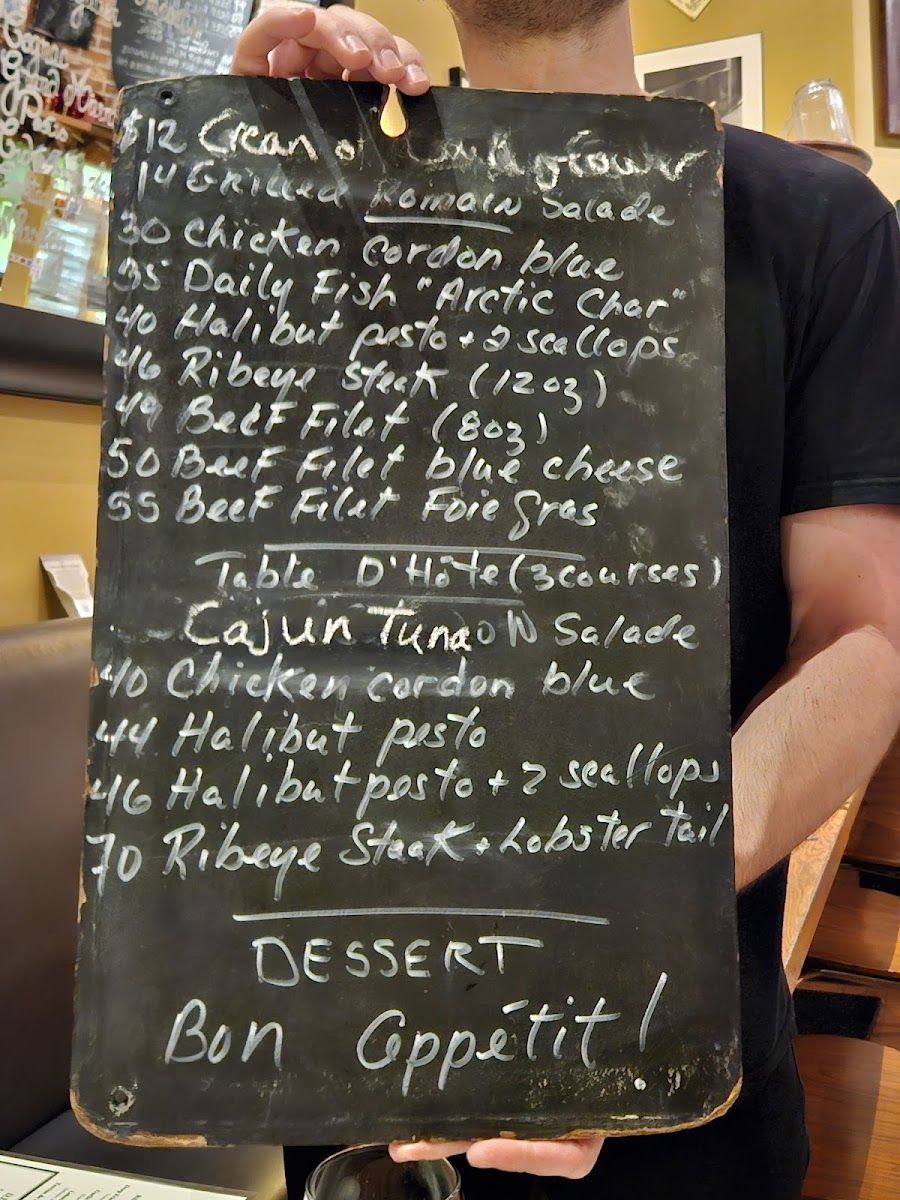 $12 Crean of Cauligrower
14 Grilled Romain Salade
30 Chicken Cordon blue
35 Daily Fish "Arctic Char"
40 Halibut pesto + 2 scallops
46 Ribeye Steak (12oz)
49 Beef Filet (8oz)
50 Beef Filet blue cheese
55 Beef Filet Foie Gras
Table D'Hôte (3 courses)
Cajun Tuna ON Salade
40 Chicken cordon blue
44 Halibut pesto
46 Halibut pesto + 2 scallops
70 Ribeye Steak + Lobster tail
DESSERT
Bon Appétit!